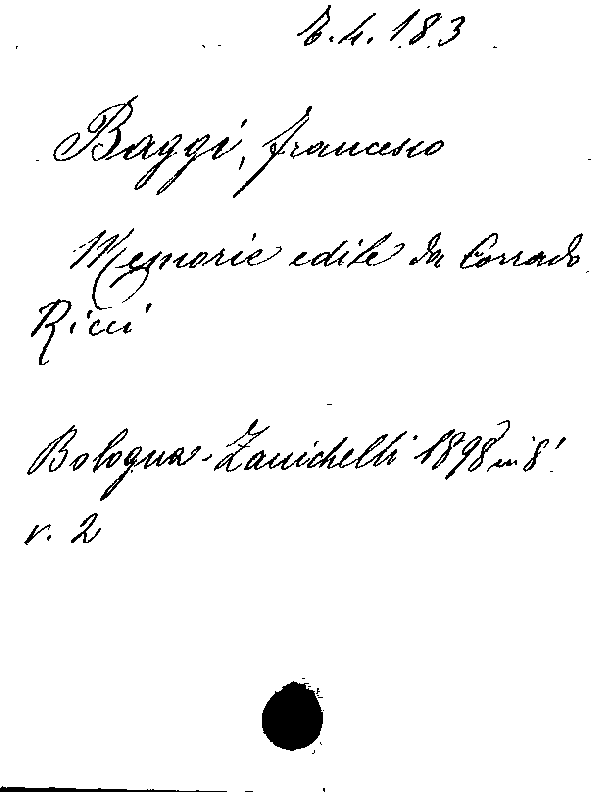 4.183
Baggi, Francesco
Memorie edite da Corrado
Ricci
Bologna-Zanichelli 1898 in 8°
v. 2